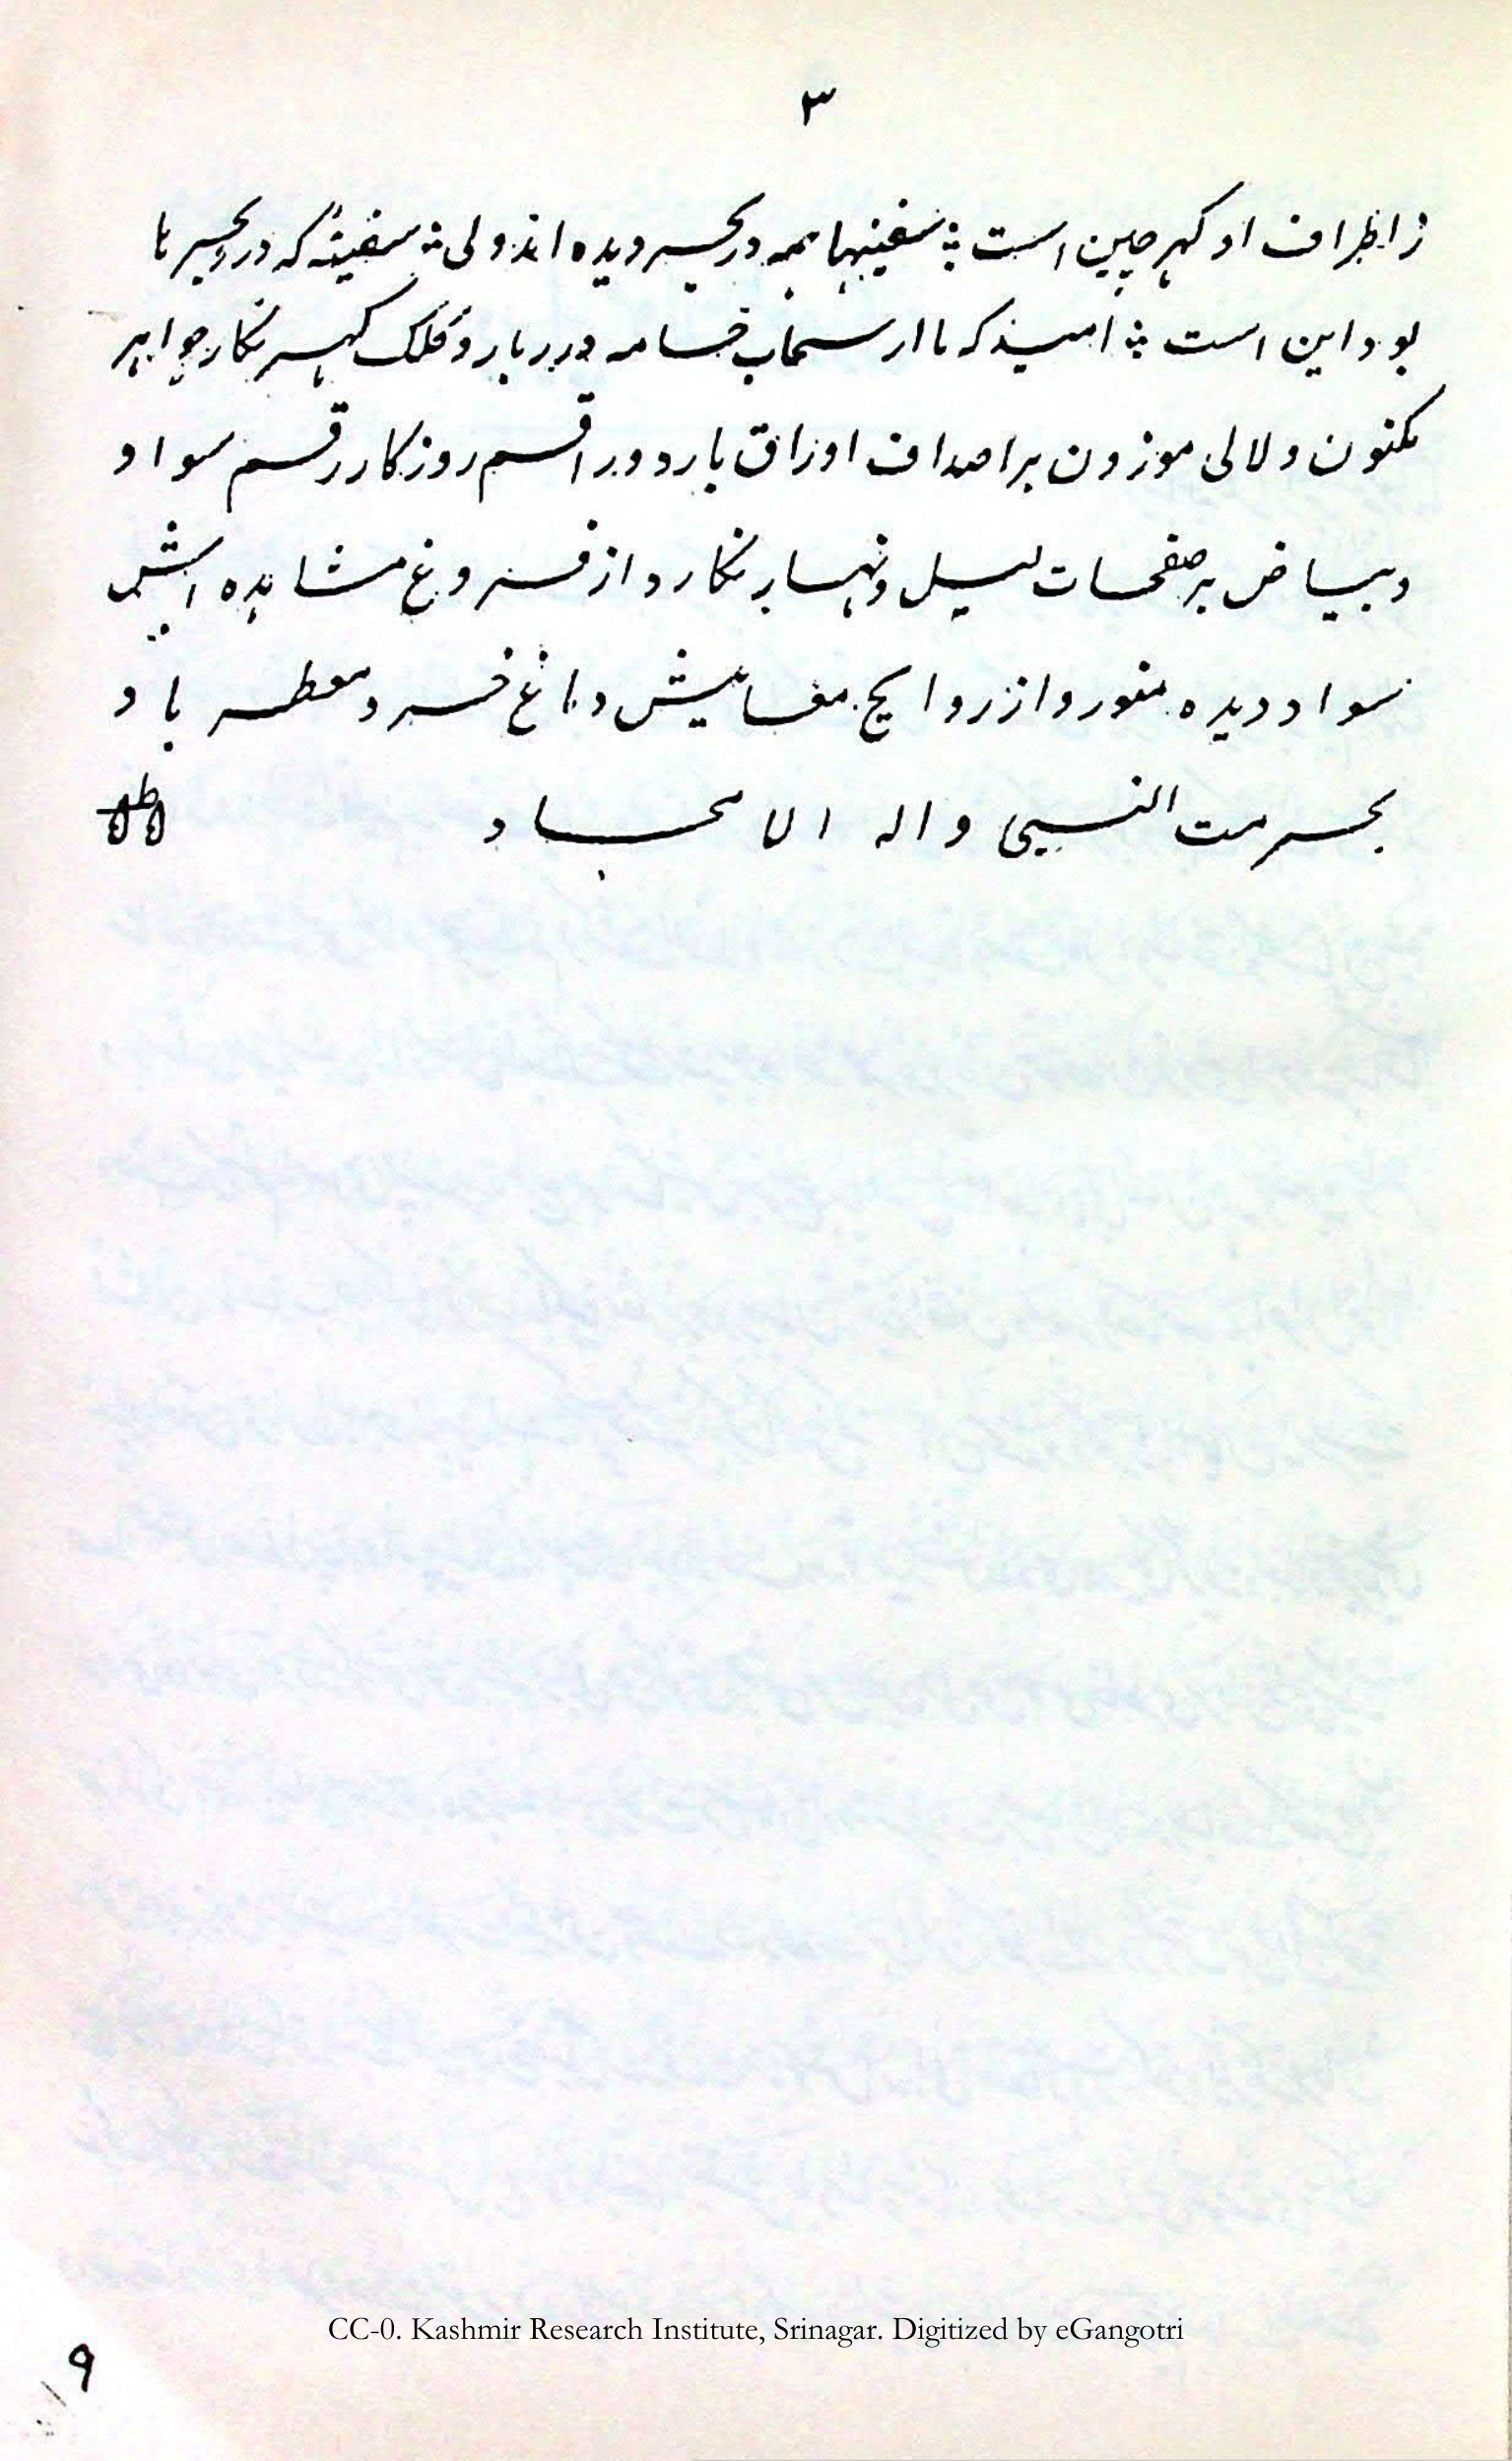 ۳
ز اطراف او گہر چین است ؞ سفینہا ہمہ در بحر دیدہ اند ولی ؞ سفینۂ کہ درو بحر ہا
بود این است ؞ امید کہ تا از سحاب خامہ درر بار و کلک گہر نگار جواہر
مکنون و لالی موزون بر اصداف اوراق بارد و راقم روزگار رقم سواد
و بیاض بر صفحات لیل و نہار نگارد از فروغ مشاہدہ اش
سواد دیدہ منور و از روایح دماغ خرد معطر باد
بحرمت النبی واله الامجاد
CC-0. Kashmir Research Institute, Srinagar. Digitized by eGangotri
۹